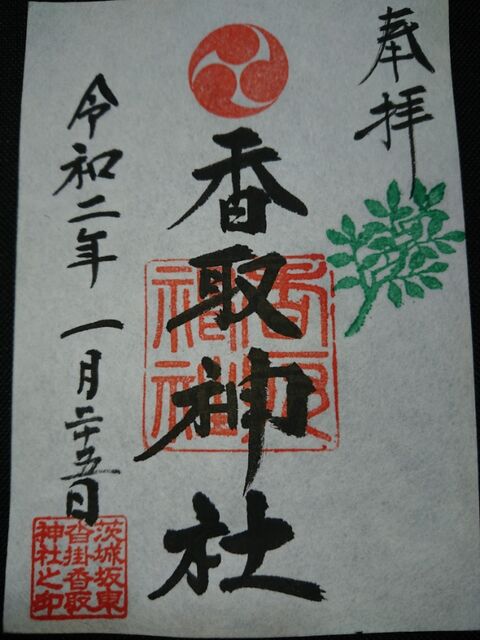 奉拝
香取神社
香取神社
令和二年 一月二十五日
茨城坂東
沓掛香取
神社之印